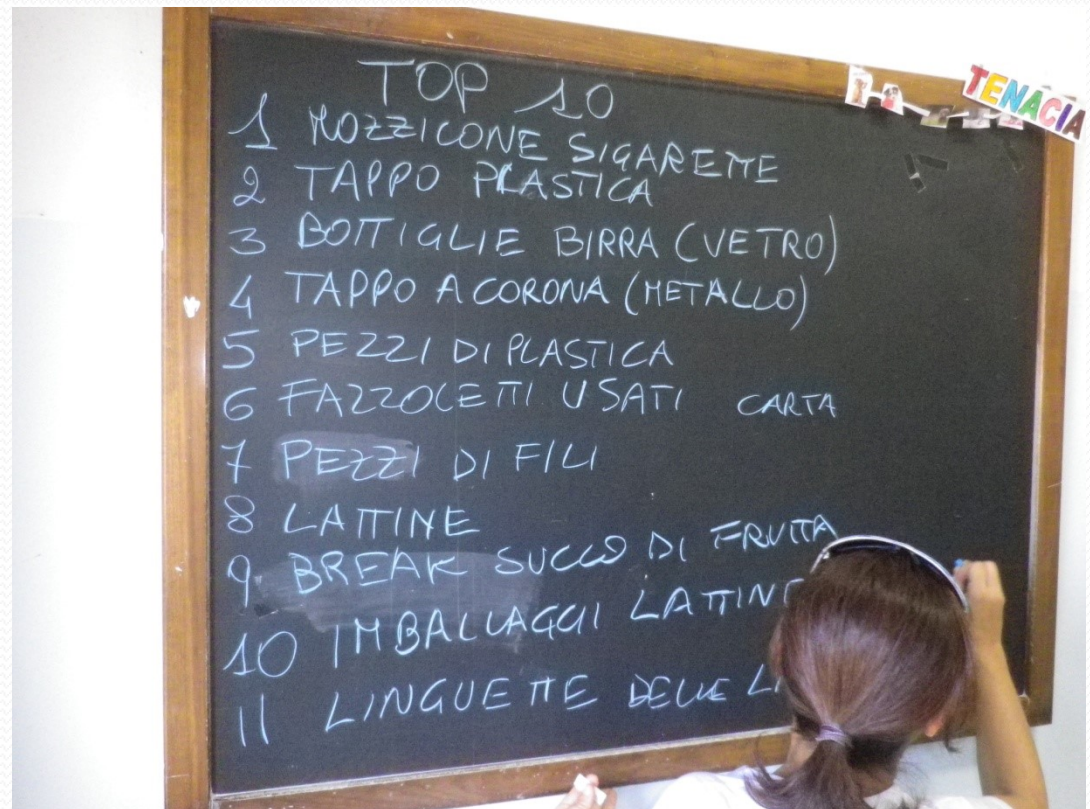 TOP 10
1 MOZZICONE SIGARETTE
2 TAPPO PLASTICA
3 BOTTIGLIE BIRRA (VETRO)
4 TAPPO A CORONA (METALLO)
5 PEZZI DI PLASTICA
6 FAZZOLETTI USATI CARTA
7 PEZZI DI FILI
8 LATTINE
9 BREAK SUCCO DI FRUTTA
10 IMBALLAGGI LATTINE
11 LINGUETTE DELLE
TENACIA